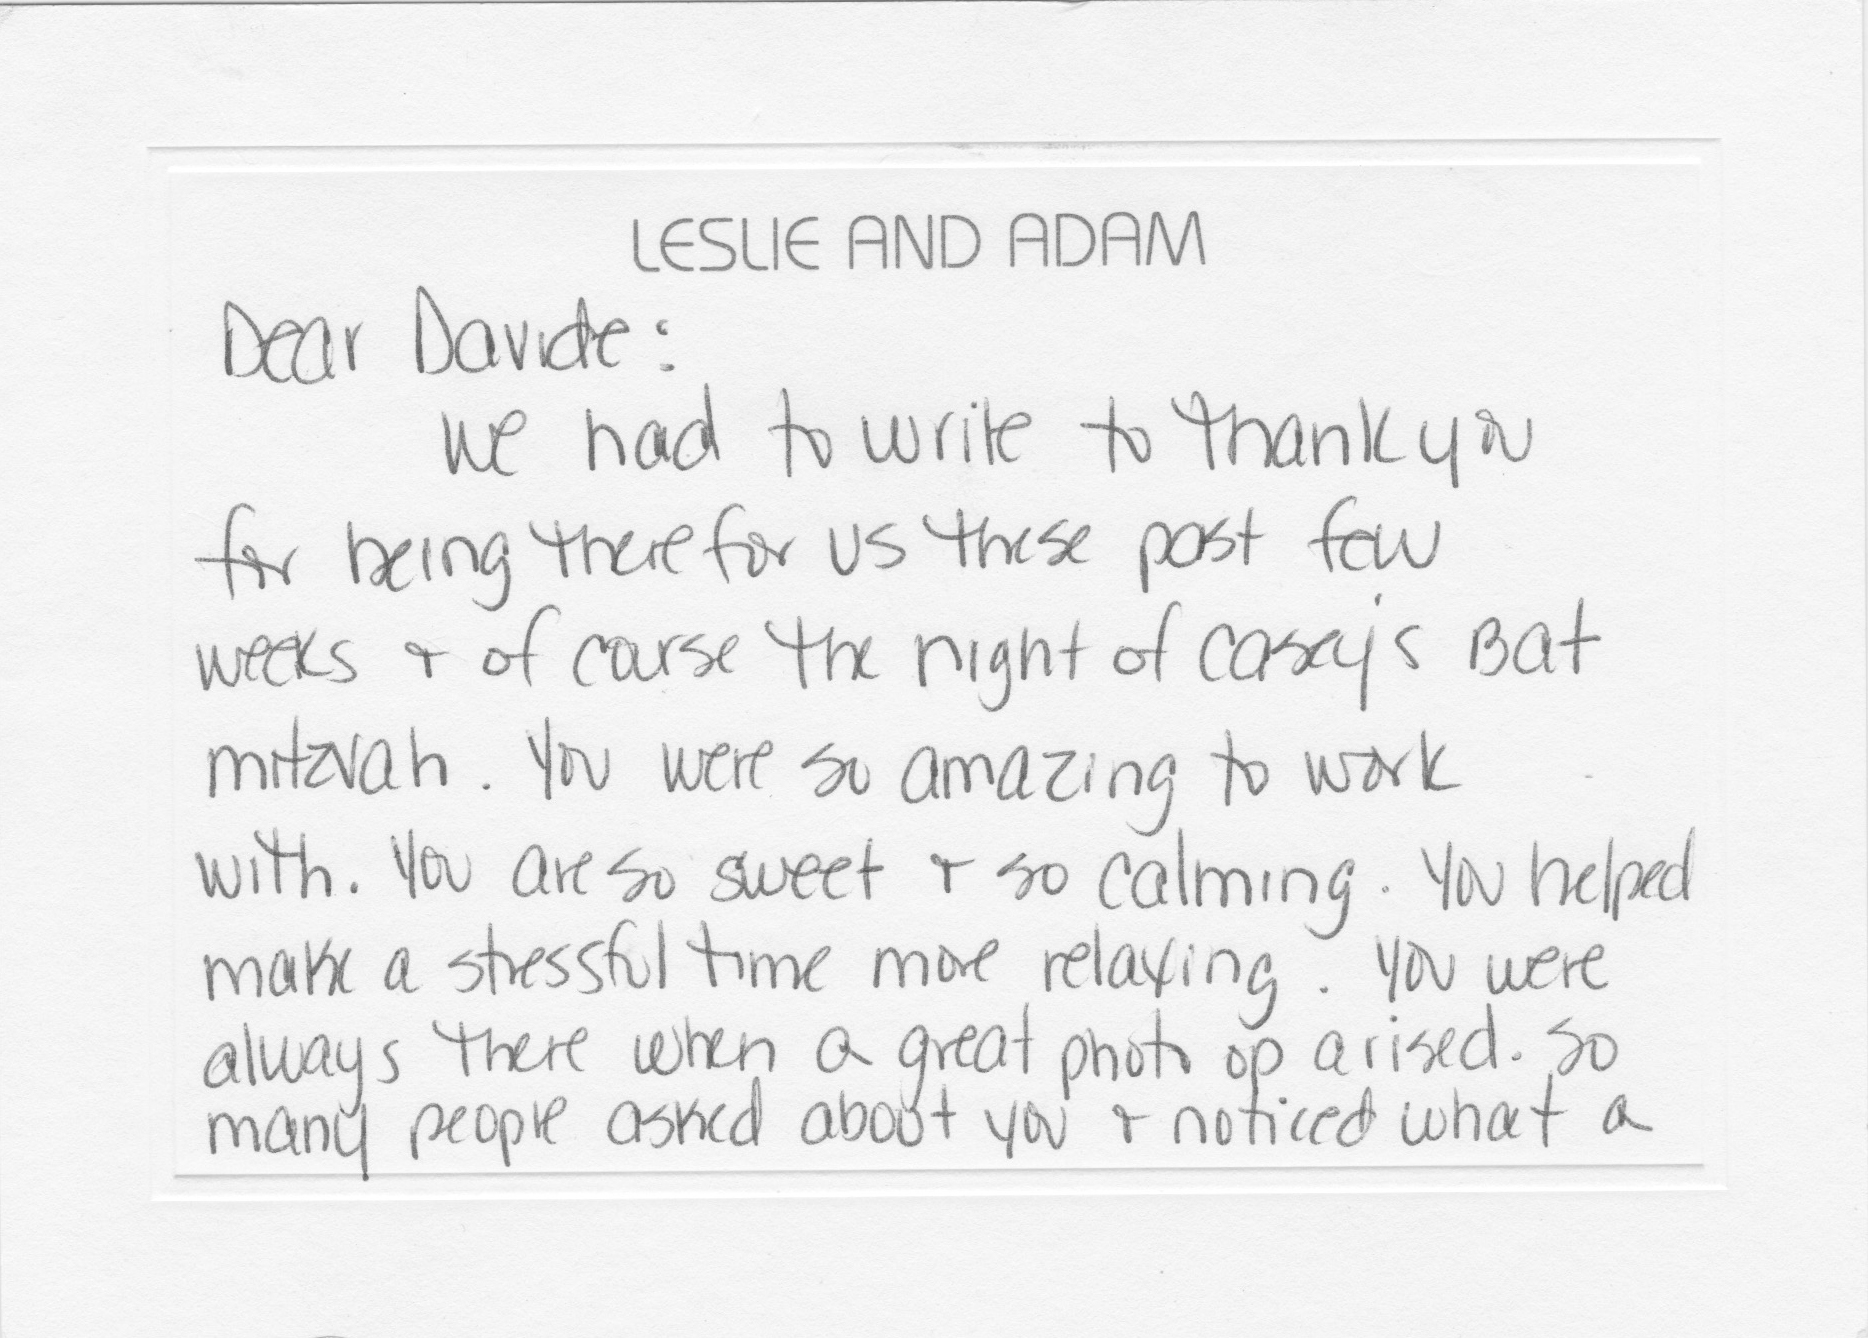 LESLIE AND ADAM
Dear Davide:
We had to write to thank you
for being there for us these past few
weeks + of course the night of Casey's Bat
mitzvah. You were so amazing to work
with. You are so sweet + so calming. You helped
make a stressful time more relaxing. You were
always there when a great photo op arised. So
many people asked about you + noticed what a